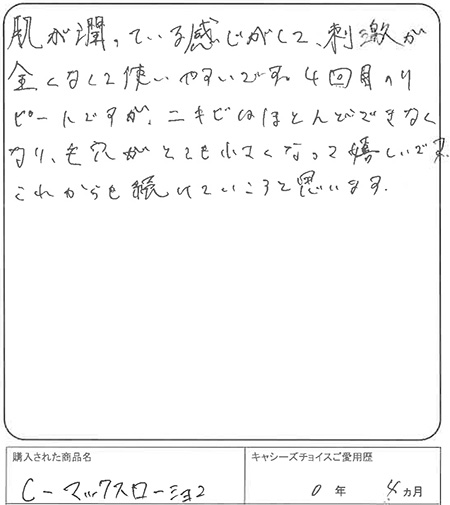 肌が潤っている感じがして、刺激が
全くなくて使いやすいです。4回目のリ
ピートですが、ニキビはほとんどできなく
なり、毛穴がとても小さくなって嬉しいです。
これからも続けていこうと思います。
購入された商品名
キャシーズチョイスご愛用歴
C-マックスローション
0年 4ヵ月